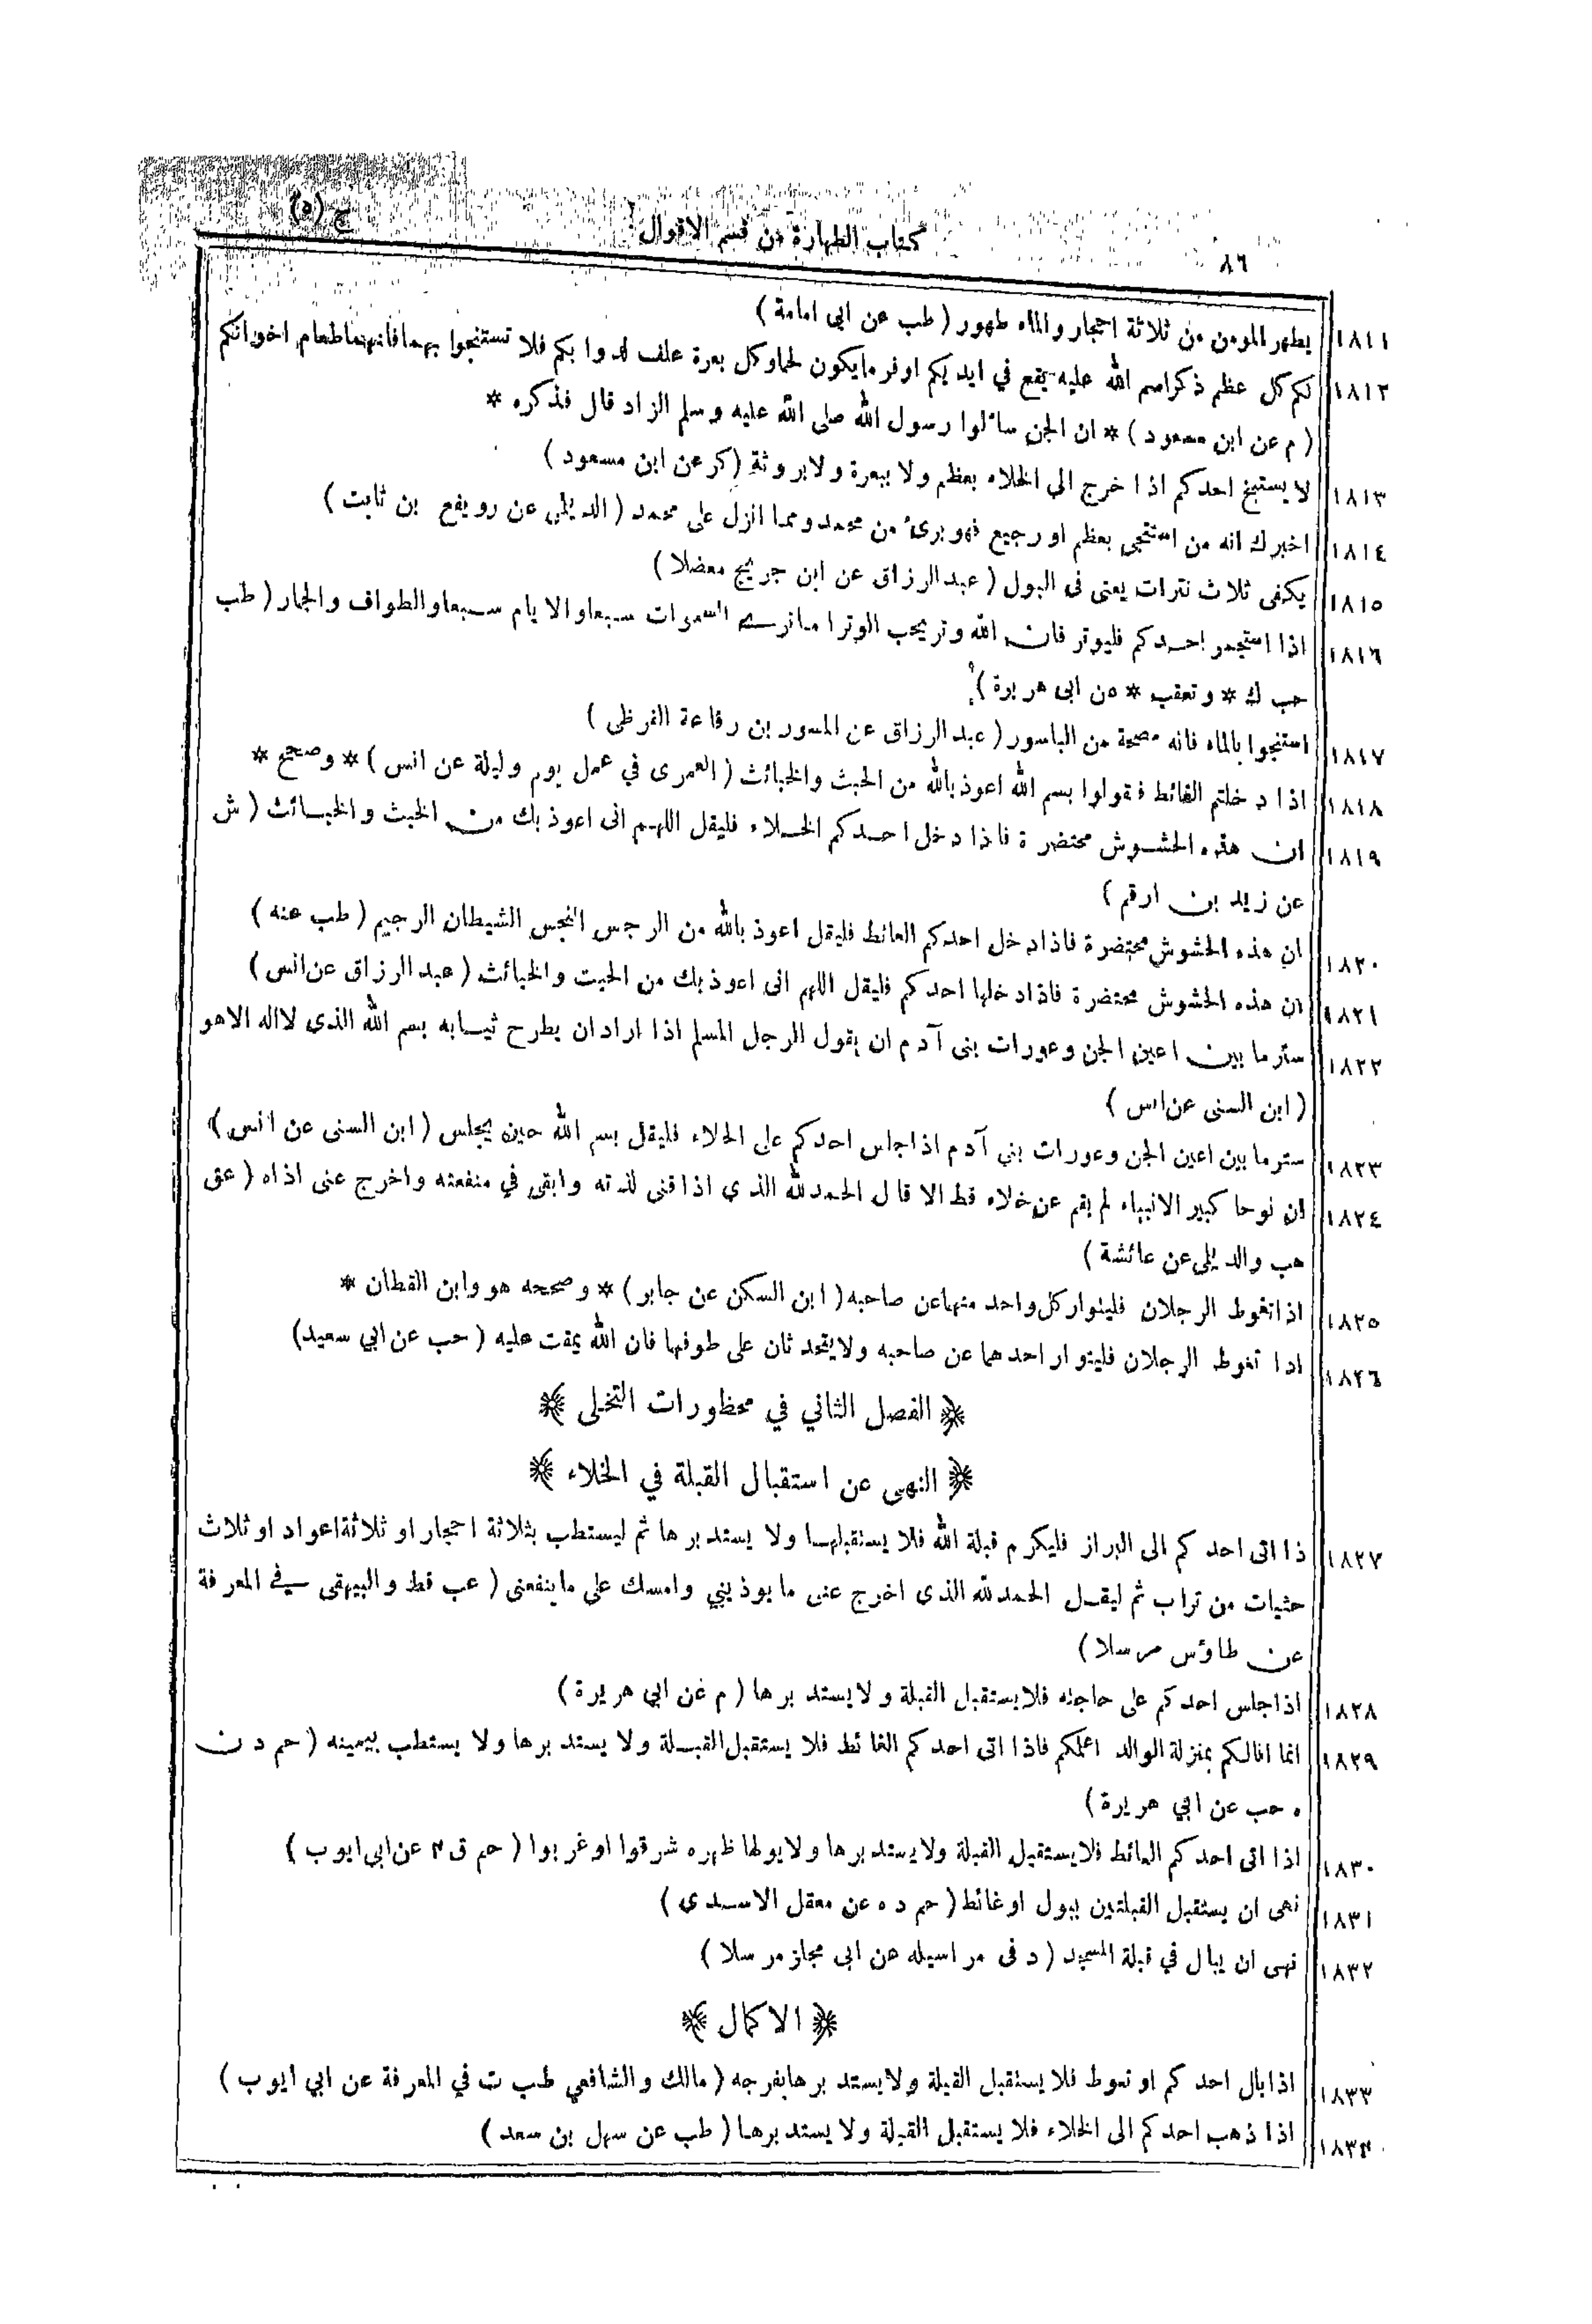 ٨٦ كتاب الطهارة من قسم الاقوال ج (٥)
١٨١١ يطهر المومن من ثلاثة احجار والماء طهور ( طب عن ابى امامة )
١٨١٢ لكم كل عظم ذكر اسم الله عليه يقع في ايديكم اوفر مايكون لحماوكل بعرة علف لدوابكم فلا تستنجوا بهمافانهماطعام اخوانكم
( م عن ابن مسعود ) * ان الجن سألوا رسول الله صلى الله عليه وسلم الزاد قال فذكره *
١٨١٣ لا يستنج احدكم اذا خرج الى الخلاء بعظم ولا ببعرة ولابروثة (كر عن ابن مسعود )
١٨١٤ اخبرك انه من استنجى بعظم او رجيع فهو برئ من محمد ومما انزل على محمد ( الديلمي عن رويفع بن ثابت )
١٨١٥ يكفى ثلاث نترات يعنى فى البول ( عبد الرزاق عن ابن جريج معضلا )
١٨١٦ اذا استجمر احدكم فليوتر فان الله وتر يحب الوتر اما ترى السموات سبعاوالايام سبعاوالطواف والجمار ( طب
حب ك * وتعقب * عن ابى هريرة )
١٨١٧ استنجوا بالماء فانه مصحة من الباسور ( عبد الرزاق عن المسور بن رفاعة القرظى )
١٨١٨ اذا دخلتم الغائط فقولوا بسم الله اعوذ بالله من الخبث والخبائث ( العمرى في عمل يوم وليلة عن انس ) * وصحح *
١٨١٩ ان هذه الحشوش محتضرة فاذا دخل احدكم الخلاء فليقل اللهم انى اعوذ بك من الخبث والخبائث ( ش
عن زيد بن ارقم )
١٨٢٠ ان هذه الحشوش محتضرة فاذادخل احدكم الغائط فليقل اعوذ بالله من الرجس النجس الشيطان الرجيم ( طب عنه )
١٨٢١ ان هذه الحشوش محتضرة فاذادخلها احدكم فليقل اللهم انى اعوذ بك من الخبث والخبائث ( عبد الرزاق عن انس )
١٨٢٢ ستر ما بين اعين الجن وعورات بنى آدم ان يقول الرجل المسلم اذا اراد ان يطرح ثيابه بسم الله الذى لااله الاهو
( ابن السنى عن انس )
١٨٢٣ ستر ما بين اعين الجن وعورات بني آدم اذاجلس احدكم على الخلاء فليقل بسم الله حين يجلس ( ابن السنى عن انس )
١٨٢٤ ان نوحا كبير الانبياء لم يقم عن خلاء قط الا قال الحمدلله الذي اذاقنى لذته وابقى في منفعته واخرج عنى اذاه ( عق
هب والديلمى عن عائشة )
١٨٢٥ اذاتغوط الرجلان فليتوار كل واحد منهاعن صاحبه ( ابن السكن عن جابر ) * وصححه هو وابن القطان *
١٨٢٦ اذا تغوط الرجلان فليتوار احدهما عن صاحبه ولايتحدثان على طوفهما فان الله يمقت عليه ( حب عن ابي سعيد)
﴿ الفصل الثاني في محظورات التخلى ﴾
﴿ النهى عن استقبال القبلة في الخلاء ﴾
١٨٢٧ ذا اتى احدكم الى البراز فليكرم قبلة الله فلا يستقبلها ولا يستدبرها ثم ليستطب بثلاثة احجار او ثلاثة اعواد او ثلاث
حثيات من تراب ثم ليقل الحمد لله الذى اخرج عنى ما يوذينى وامسك على ماينفعنى ( عب قط والبيهقى في المعرفة
عن طاؤس مرسلا )
١٨٢٨ اذاجلس احدكم على حاجته فلايستقبل القبلة ولا يستدبرها ( م عن ابي هريرة )
١٨٢٩ انما انالكم بمنزلة الوالد اعلمكم فاذا اتى احدكم الغائط فلا يستقبل القبلة ولا يستدبرها ولا يستطب بيمينه ( حم د ن
ه حب عن ابي هريرة )
١٨٣٠ اذا اتى احدكم الغائط فلايستقبل القبلة ولايستدبرها ولايولها ظهره شرقوا اوغربوا ( حم ق ٤ عن ابى ايوب )
١٨٣١ نهى ان يستقبل القبلتين ببول او غائط ( حم د ه عن معقل الاسدى )
١٨٣٢ نهى ان يبال في قبلة المسجد ( د فى مراسيله عن ابى مجلز مرسلا )
﴿ الاكمال ﴾
١٨٣٣ اذابال احدكم او تغوط فلايستقبل القبلة ولايستدبرهابفرجه ( مالك والشافعي طب ت في المعرفة عن ابي ايوب )
١٨٣٤ اذا ذهب احدكم الى الخلاء فلا يستقبل القبلة ولا يستدبرها ( طب عن سهل بن سعد )